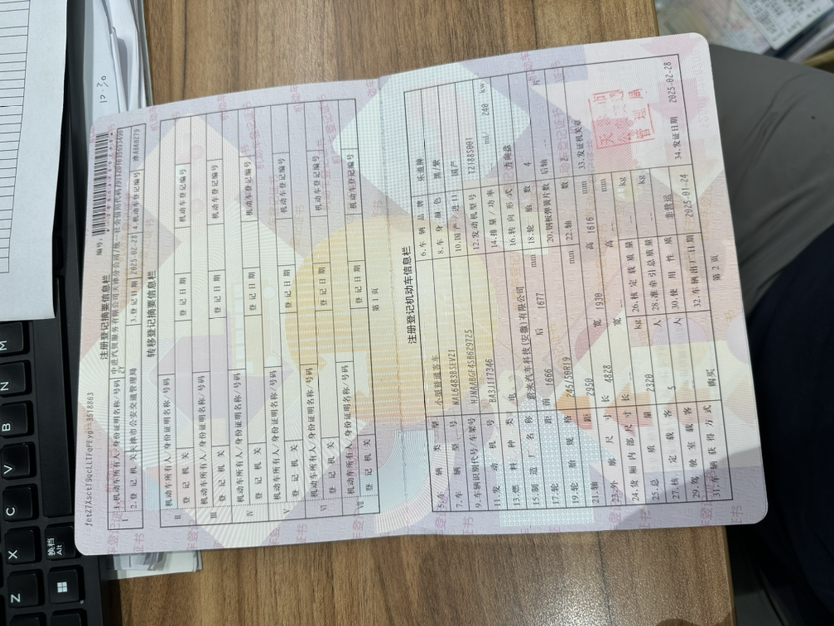 编号:
注册登记摘要信息栏
1.机动车所有人/身份证明名称/号码
2.登记机关 天津市公安交通管理局 3.登记日期 2025-02-28 4.机动车登记编号
转移登记摘要信息栏
机动车所有人/身份证明名称/号码
登记机关 登记日期 机动车登记编号
机动车所有人/身份证明名称/号码
登记机关 登记日期 机动车登记编号
机动车所有人/身份证明名称/号码
登记机关 登记日期 机动车登记编号
机动车所有人/身份证明名称/号码
登记机关 登记日期 机动车登记编号
机动车所有人/身份证明名称/号码
登记机关 登记日期 机动车登记编号
机动车所有人/身份证明名称/号码
登记机关 登记日期 机动车登记编号
第1页
注册登记机动车信息栏
5.车辆类型 小型普通客车 6.车辆品牌 乐道牌
7.车辆型号 8.车身颜色
9.车辆识别代号/车架号 10.国产/进口 国产
11.发动机号 12.发动机型号
13.燃料种类 电 14.排量/功率 ml/ 240 kw
15.制造厂名称 蔚来汽车科技(安徽)有限公司 16.转向形式 方向盘
17.轮距 前 1666 后 1677 mm 18.轮胎数 4
19.轮胎规格 20.钢板弹簧片数 后轴
21.轴距 2950 mm 22.轴数 2
23.外廓尺寸 长 4828 宽 1930 高 1616 mm
24.货厢内部尺寸 长 宽 高 mm
25.总质量 2320 kg 26.核定载质量 kg
27.核定载客 5 人 28.准牵引总质量 kg
29.驾驶室载客 人 30.使用性质 非营运
31.车辆获得方式 购买 32.车辆出厂日期 2025-01-24
33.发证机关章
34.发证日期 2025-02-28
第2页
M
B
V
C
X
Z
换档
Alt